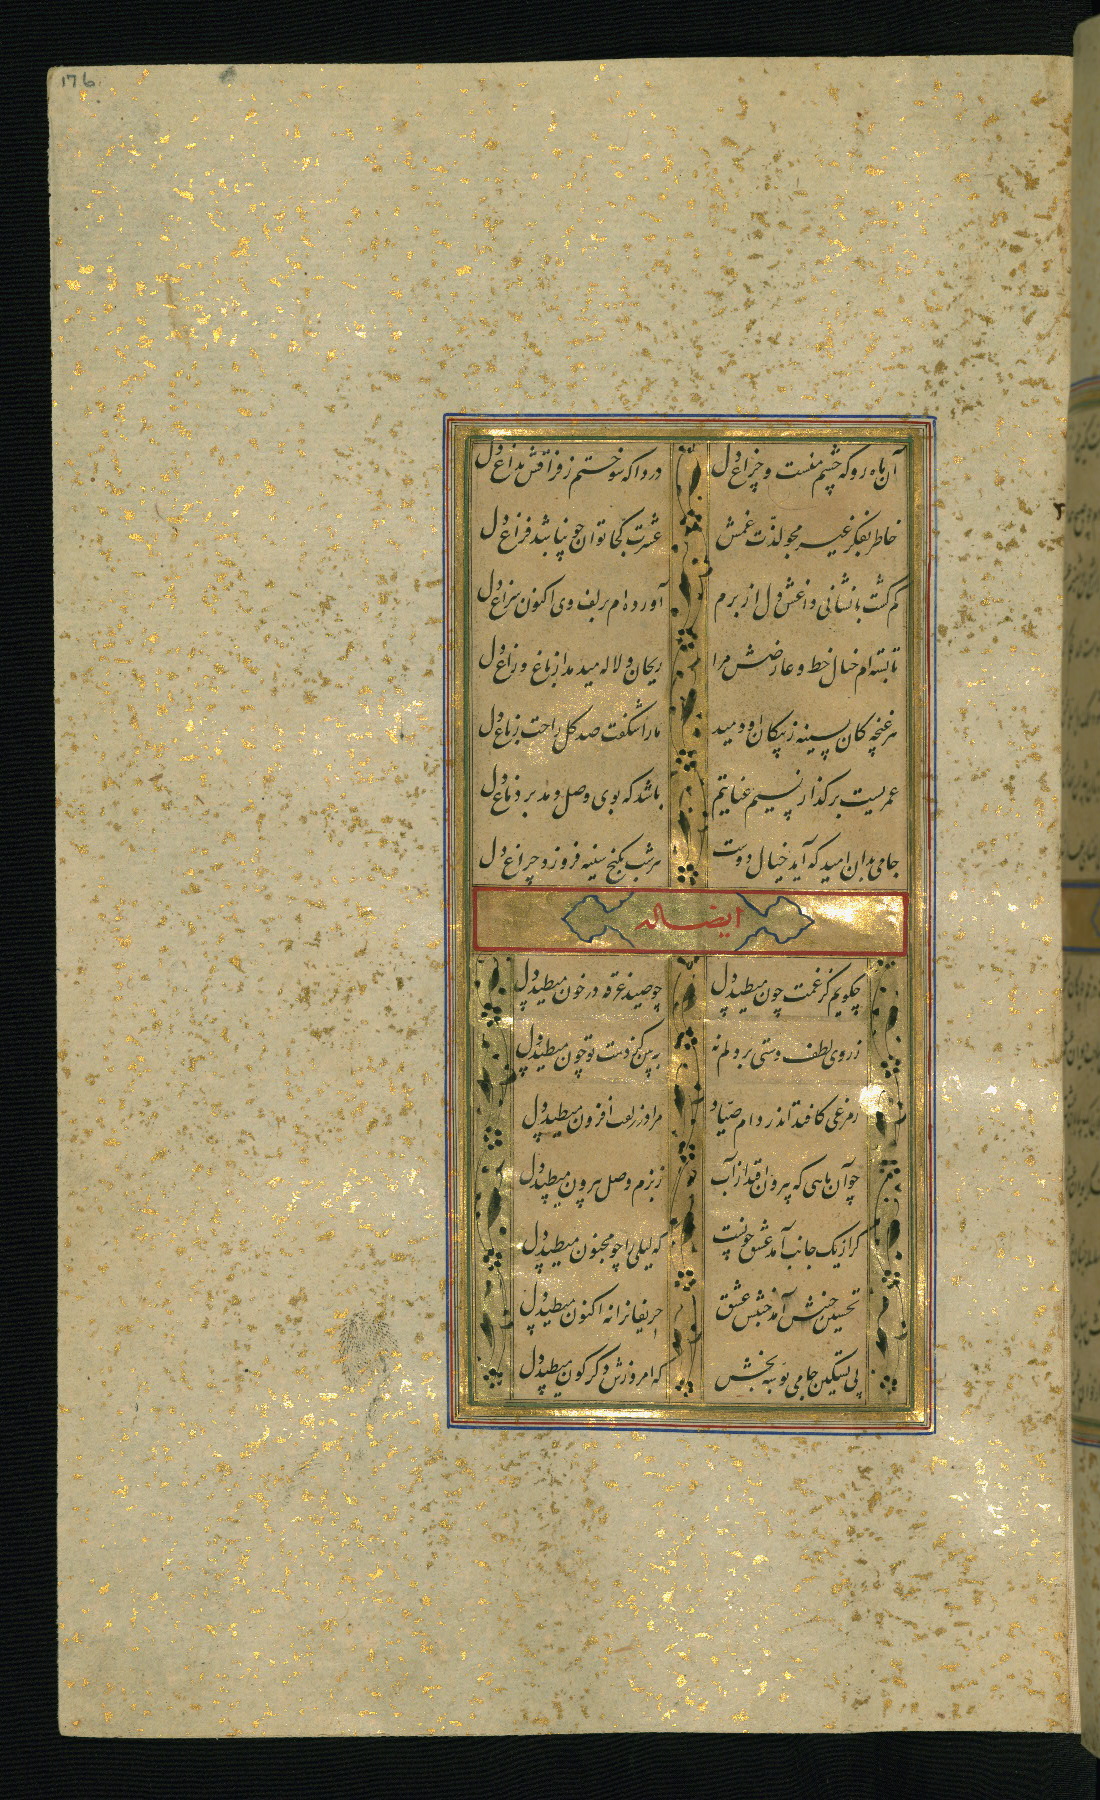 176
آن ماه رو که چشم منست و چراغ دل دردا که سوختم ز فراقش بداغ دل
خاطر بفکر غیر مجو لذت غمش عشرت کجا توان چو نباشد فراغ دل
گم گشت با نشانی داغش دل از برم آورده ام بزلف وی اکنون سراغ دل
تا بسته ام خیال خط و عارضش مرا ریحان و لاله میدمد از باغ و راغ دل
هر غنچه کان بسینه ز پیکان او دمید ما را شکفت صد گل راحت ز باغ دل
عمریست بر گذار نسیم عنایتم باشد که بوی وصل دمد بر دماغ دل
جامی بدان امید که آید خیال دوست هر شب بکنج سینه فروزد چراغ دل
ایضا له
چگویم کز غمت چون میطپد دل چو صید غرقه در خون میطپد دل
ز روی لطف دستی بر دلم نه ببین کز دست تو چون میطپد دل
ز مرغی کافتد اندر دام صیاد مرا در زلفت افزون میطپد دل
چو آن ماهی که بیرون افتد از آب ز بزم وصل بیرون میطپد دل
گر از یک جانب آمد عشق چونست که لیلی را چو مجنون میطپد دل
نخستین جنبش آمد جنبش عشق حریفانرا نه اکنون میطپد دل
پی تسکین جامی بوسه بخش که امروزش دگرگون میطپد دل